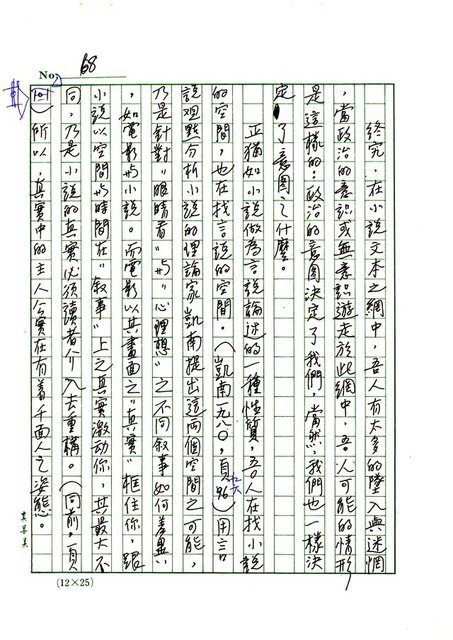 No. 68
終究,在小說文本之網中,吾人有太多的墜入與迷惘
,當政治的意識或無意識遊走於此網中,吾人可能的情形,
是這樣的:政治的意圖決定了我們,當然,我們也一樣決
定了意圖之什麼。
正猶如小說做為言說論述的一種性質,吾人在找小說
的空間,也在找言說的空間。(凱南一九八〇,頁九六)用言
說觀點分析小說的理論家凱南提出這兩個空間之可能,
乃是針對"眼睛看"與"心理想"之不同敘事如何差異
,如電影與小說。而電影以其畫面之"真實"框住你,跟
小說以空間與時間在"敘事"上之真實激動你,其最大不
同,乃是小說的真實必須讀者介入去重構。(同前,頁
)所以,真實中的主人公實在有著千面人之姿態。
(12×25)